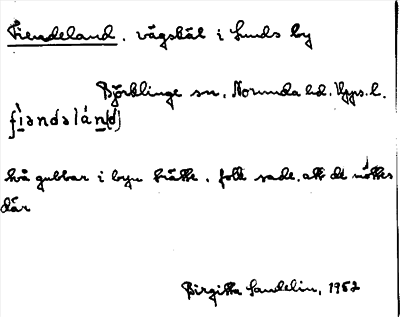 Fiendeland. vägskäl i Lunds by
Björklinge sn, Norunda hd. Upps. l.
fìəndəlán(d)
två gubbar i byn trätte. folk sade, att det möttes
där
Birgitta Sandelin, 1952